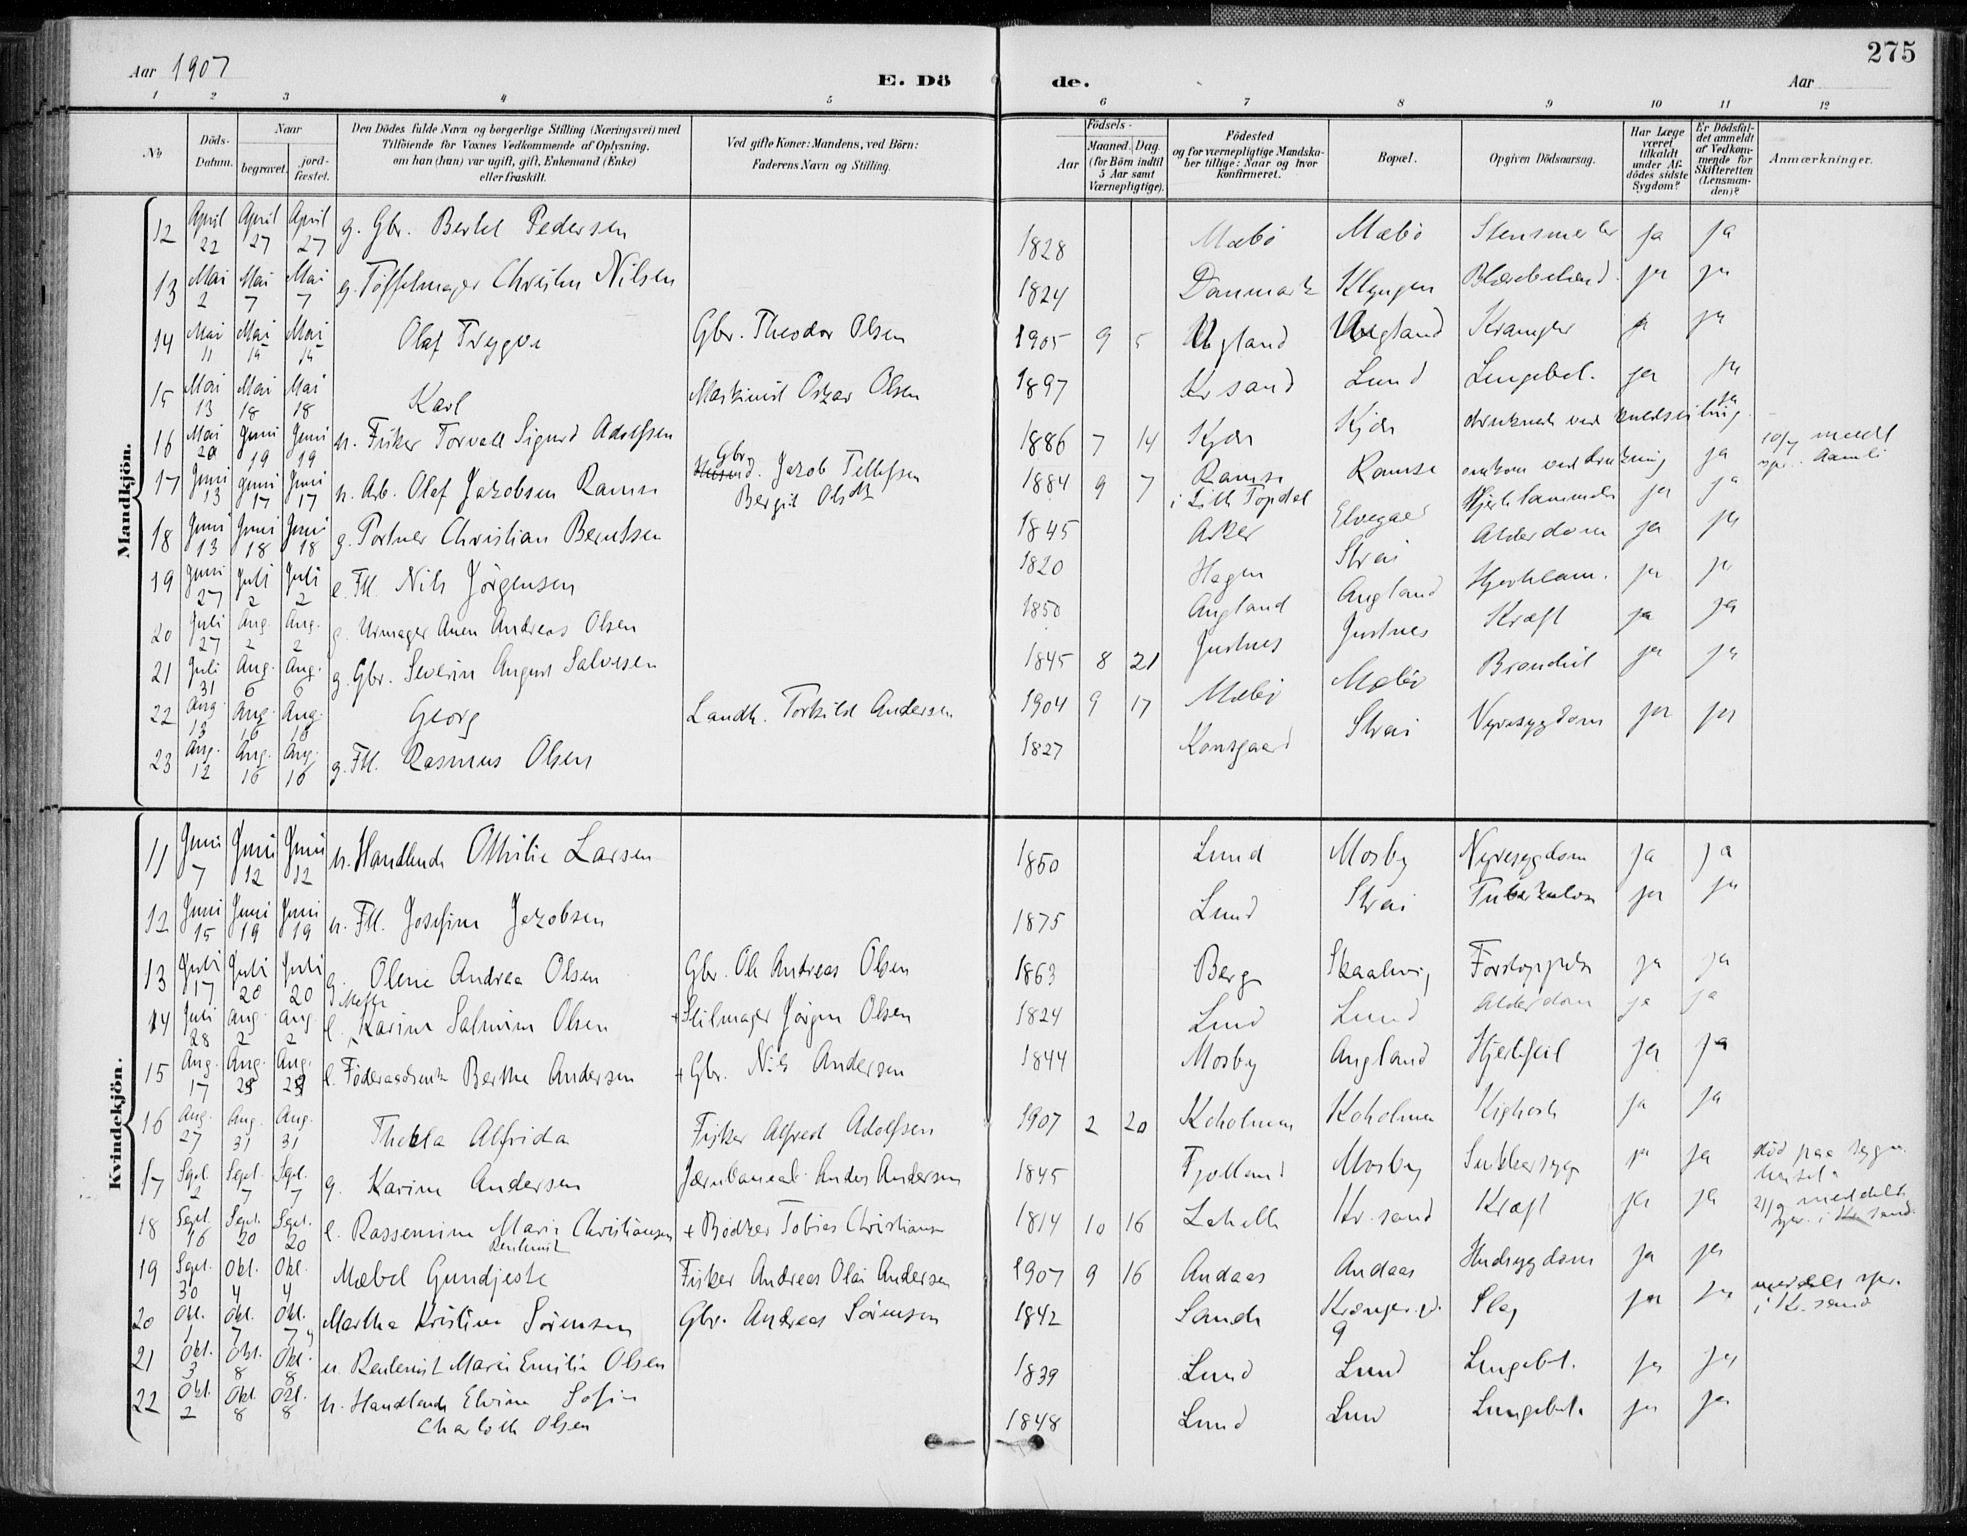 275
Aar 1907 E. Dö de. Aar
1 2 3 4 5 6 7 8 9 10 11 12
No Döds-Datum. Naar begravet. jord-fæstet. Den Dödes fulde Navn og borgerlige Stilling (Næringsvei) med Tilföiende for Voxnes Vedkommende af Oplysning, om han (hun) var ugift, gift, Enkemand (Enke) eller fraskilt. Ved gifte Koner: Mandens, ved Börn: Faderens Navn og Stilling. Födsels- Aar Maaned. Dag. (for Börn indtil 5 Aar samt Værnepligtige). Födested og for værnepligtige Mandskaber tillige: Naar og hvor konfirmeret. Bopæl. Opgiven Dödsaarsag. Har Læge været tilkaldt under Afdödes sidste Sygdom? Er Dödsfaldet anmeldt af Vedkommende for Skifteretten (Lensmanden)? Anmærkninger.
Mandkjön.
12 April 22 April 27 April 27 g. Gbr. Bertel Pedersen 1828 Mæbø Mæbø ja ja
13 Mai 2 Mai 7 Mai 7 g. Töffelmager Christen Nilsen 1824 Danmark Klyngen ja ja
14 Mai 11 Mai 15 Mai 15 Olaf Trygve Gbr. Theodor Olsen 1905 9 5 Ugland Kramper ja ja
15 Mai 13 Mai 18 Mai 18 Karl Maskinist Oskar Olsen 1897 Kr sand Lund Lungebet. ja ja
16 Mai 20 Juni 19 Juni 19 u. Fisker Torvald Sigurd Adolfsen 1886 7 14 druknede ved ja
17 Juni 13 Juni 17 Juni 17 u. Arb. Olaf Jakobsen Ramse Gbr. Jakob Tellefsen Bergit Olsdtr 1884 9 7 Ramse i Lille Topdal Ramse omkom ved drukning ja 10/7 meldt spr. Aamli
18 Juni 13 Juni 18 Juni 18 g. Portner Christian Berntsen 1845 Aker Elvegaden Hjertelammelse ja ja
19 Juni 27 Juli 2 Juli 2 e. Fll. Nils Jörgensen 1820 Hagen Strai Alderdom ja ja
20 Juli 27 Aug. 2 Aug. 2 g. Urmager Anen Andreas Olsen 1850 Augland Augland Hjertelam. ja ja
21 Juli 31 Aug. 6 Aug. 6 g. Gbr. Severin August Salvesen 1845 8 21 Justnes Justnes Kræft ja ja
22 Aug. 13 Aug. 16 Aug. 16 Georg Landh. Torkild Andersen 1904 9 17 Mæbø Mæbø ja ja
23 Aug. 12 Aug. 16 Aug. 16 g. Fll. Rasmus Olsen 1827 Kongsgaard Strai Nyresygdom ja ja
Kvindekjön.
11 Juni 7 Juni 12 Juni 12 u. Handlende Othilie Larsen 1850 Lund Mosby Nyresygdom ja ja
12 Juni 15 Juni 19 Juni 19 u. Fll. Josefine Jakobsen 1875 Lund Strai Tuberkulose ja ja
13 Juli 17 Juli 20 Juli 20 g. Olene Andrea Olsen Gbr. Ole Andreas Olsen 1863 Berg Forstoppelse ja ja
14 Juli 28 Aug. 2 Aug. 2 e. Mette Karine Salmine Olsen + Seilmager Jörgen Olsen 1824 Lund Lund Alderdom ja ja
15 Aug. 17 Aug. Aug. e. Föderaadsenke Berthe Andersen + Gbr. Nils Andersen 1844 Mosby Augland Hjertefeil ja ja
16 Aug. 27 Aug. 31 Aug. 31 Thekla Alfrida Fisker Alfred Adolfsen 1907 2 20 Koholmen Koholmen Kighoste ja ja
17 Sept. 2 Sept. 7 Sept. 7 g. Karine Andersen Jernbaneal. Anders Andersen 1845 Fjotland Mosby Sukkersyge ja ja död paa sygehuset
18 Sept. 16 Sept. 20 Sept. 20 e. Rassemine Marie Christiansen Rentenist + Bødker Tobias Christiansen 1814 10 16 Kr. sand Kræft ja ja 21/9 meddelt spr. i Kr sand.
19 Sept. 30 Okt. 4 Okt. 4 Mabel Gundjeste Fisker Andreas Olai Andersen 1907 9 16 Andaas Andaas Hudsygdom ja ja
20 Okt. 1 Okt. 7 Okt. 7 Martha Kristine Sörensen Gbr. Andreas Sörensen 1842 Slag ja ja meddelt spr. i Kr. sand
21 Okt. 3 Okt. 8 Okt. 8 u. Rentenist Marie Emilie Olsen 1839 Lund Lund Lungebet. ja ja
22 Okt. 2 Okt. 8 Okt. 8 u. Handlende Elvine Sofie Charlotte Olsen 1848 Lund Lund Lungebet. ja ja